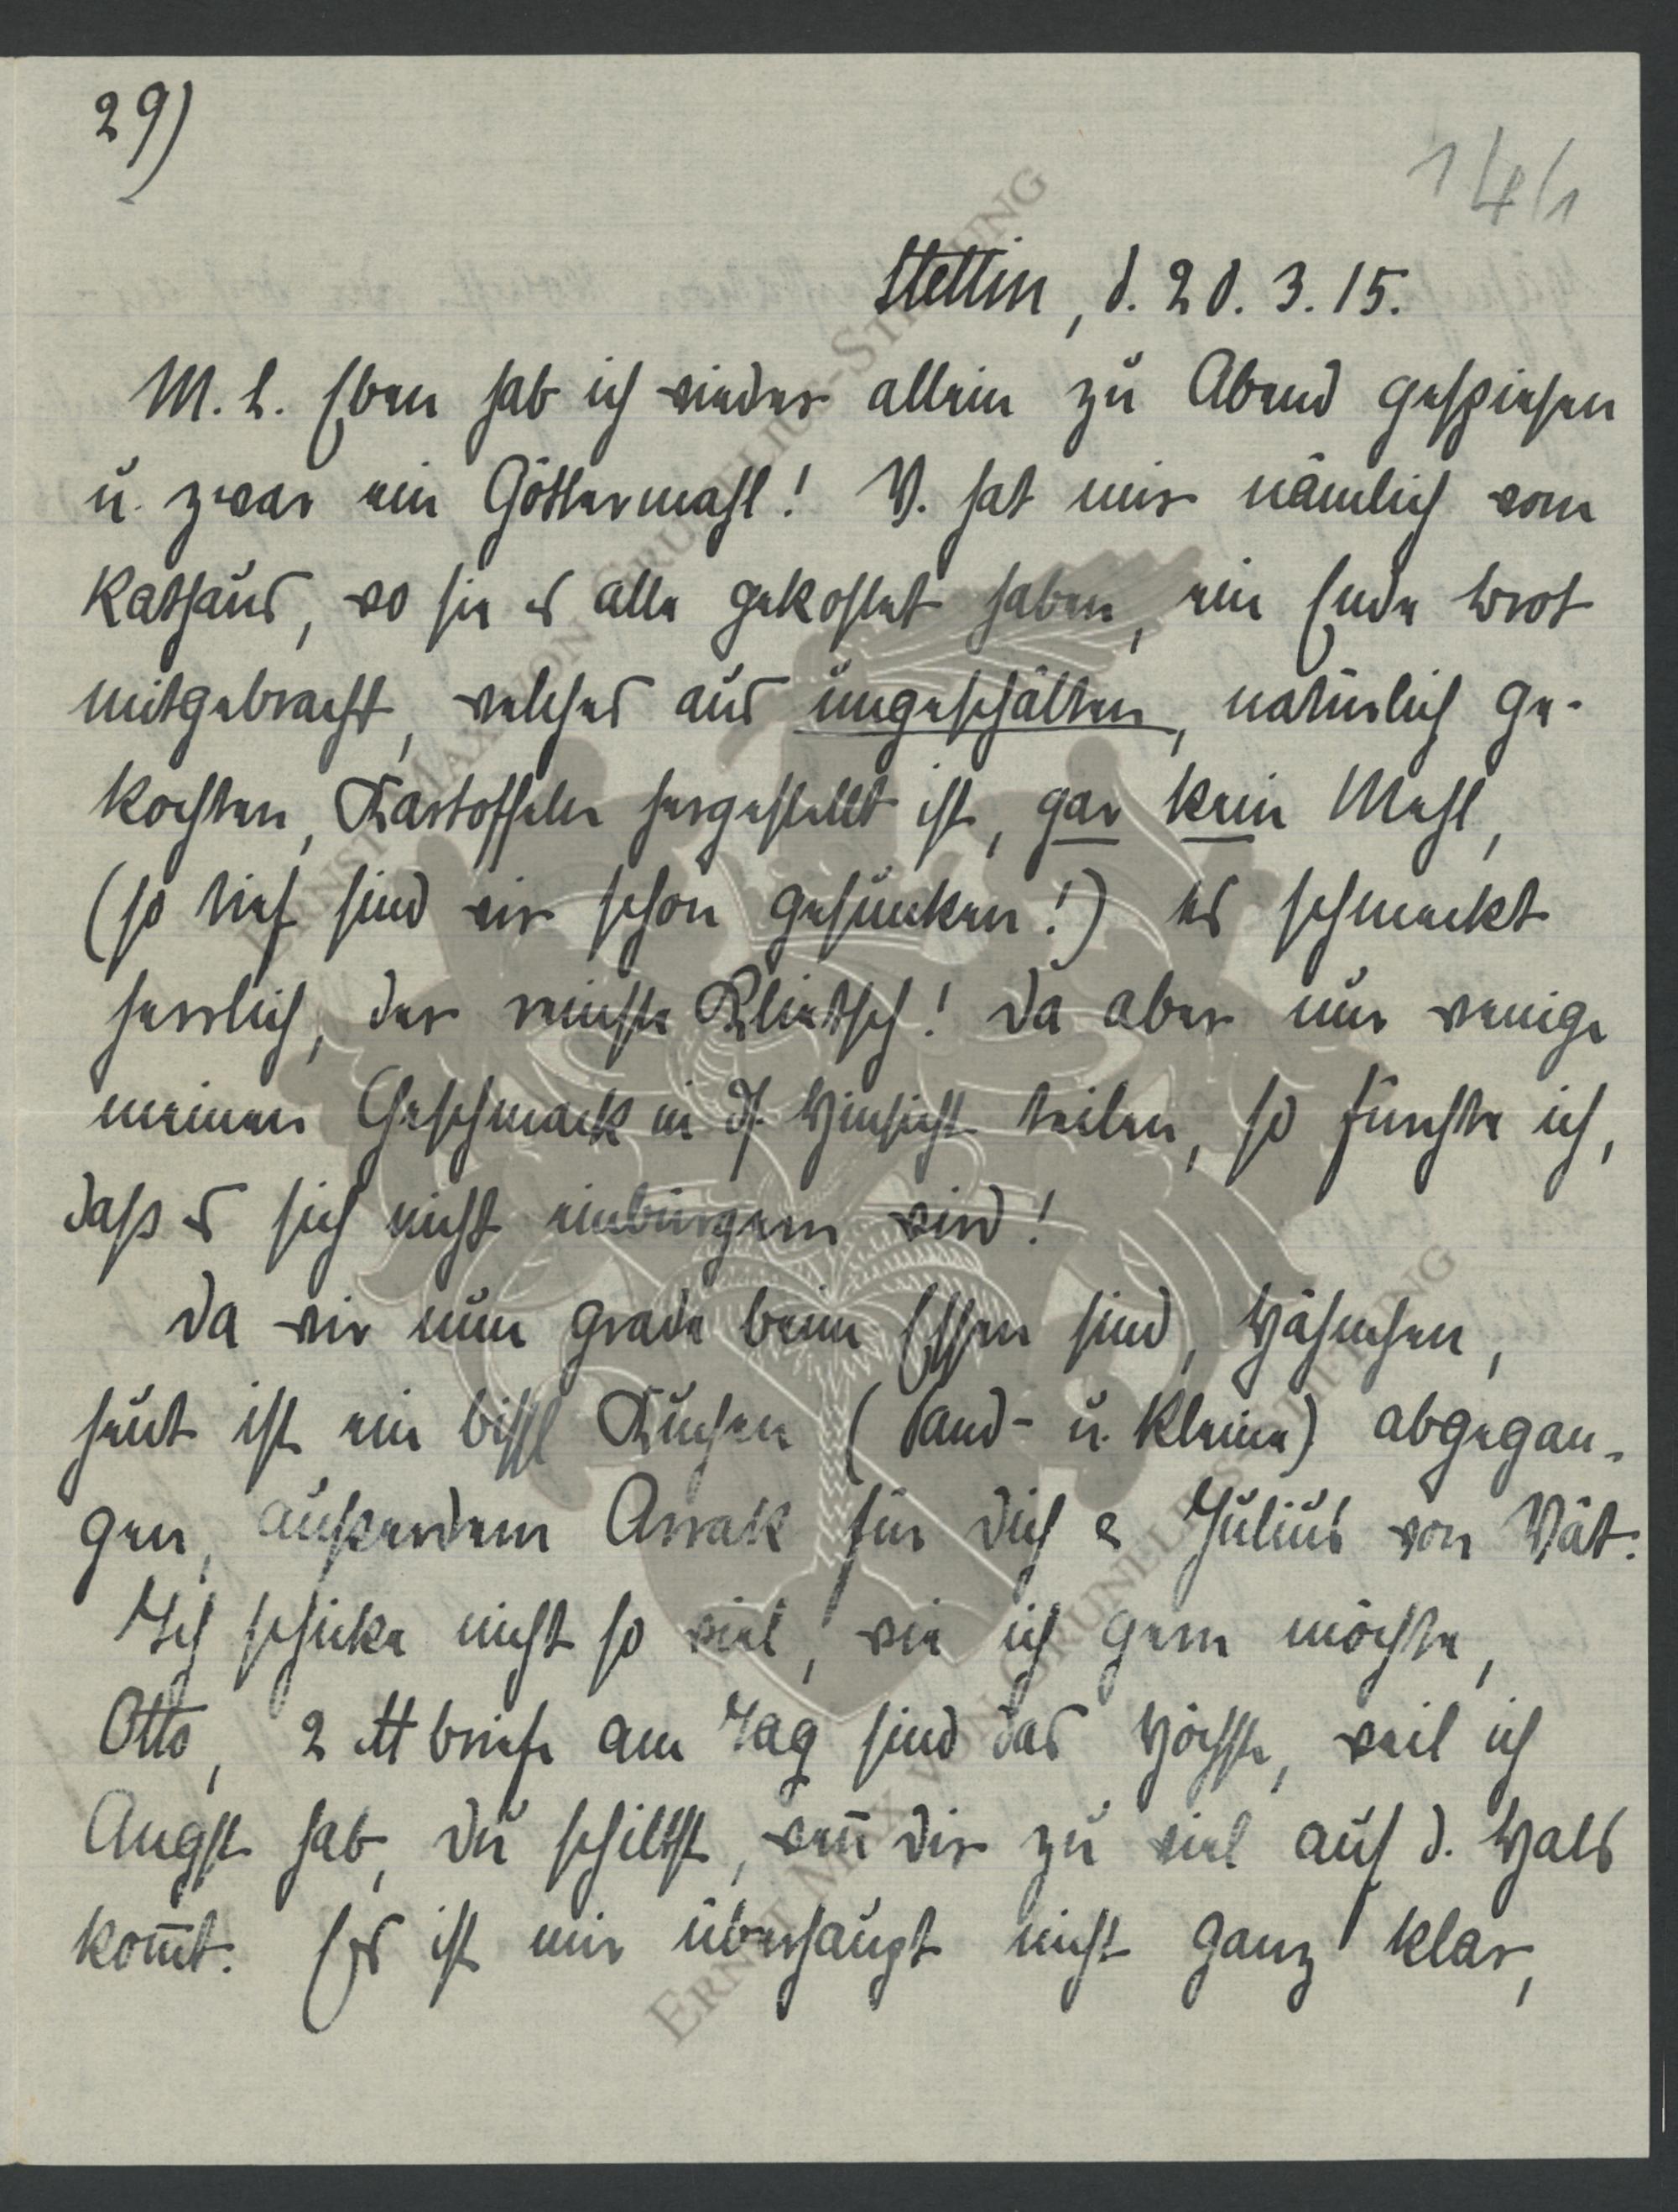 29)
141
Stettin, d. 20. 3. 15.
M. L. Eben hab ich wieder allein zu Abend gespiesen
u. zwar ein Göttermahl! V. hat mir nämlich vom
Rathaus, wo sie es alle gekostet haben, ein Ende Brot
mitgebracht, welches aus ungeschälten, natürlich ge-
kochten, Kartoffeln hergestellt ist, gar kein Mehl,
(so tief sind wir schon gesunken!) es schmeckt
herrlich, der reinste Klietsch! Da aber nur wenige
meinen Geschmack in ds. Hinsicht teilen, so fürchte ich,
dass es sich nicht einbürgern wird!
Da wir nun grade beim Essen sind, Hähnchen,
heut ist ein bissl Kuchen (Sand- u. kleine) abgegan-
gen, außerdem Arrak für Dich & Julius von Vät.
Ich schicke nicht so viel, wie ich gern möchte,
Otto, 2 ℔ briefe am Tag sind das Höchste, weil ich
Angst hab, Du schiltst, weñ Dir zu viel auf d. Hals
kom̄t. Es ist mir überhaupt nicht ganz klar,
ERNST MAX VON GRUNELIUS-STIFTUNG
ERNST MAX VON GRUNELIUS-STIFTUNG